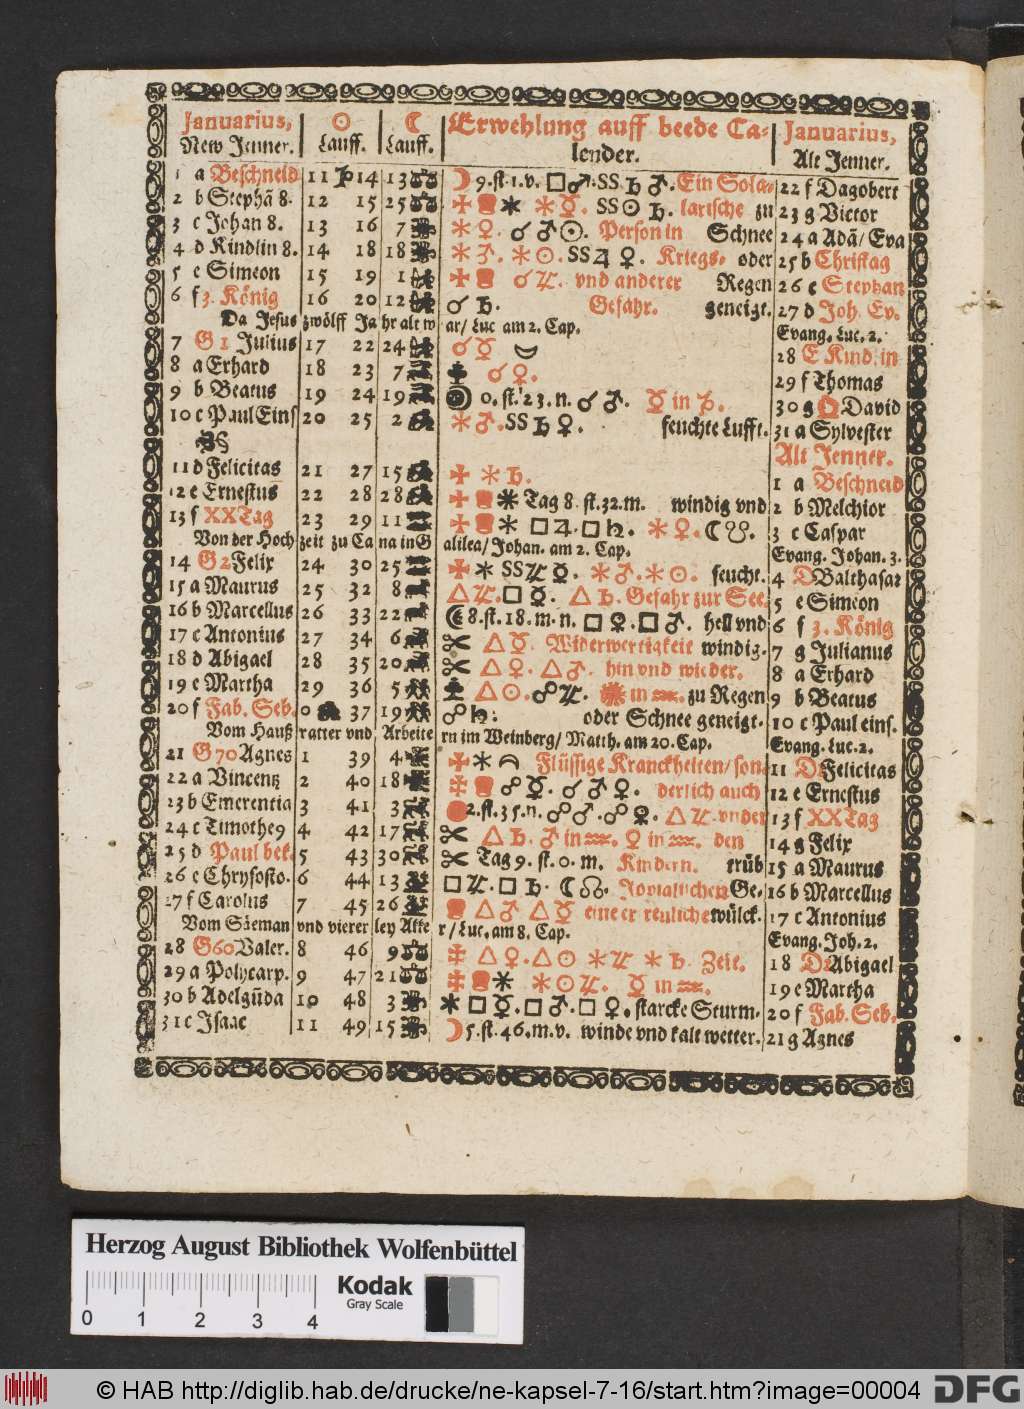 Januarius, ☉ ☾ Erwehlung auff beede Ca- Januarius,
New Jenner. Lauff. Lauff. lender. Alt Jenner.
1 a Beschneid 11 ♑ 14 13 ♎ ☽ 9. st. 1. v. □ ♂. SS ♄ ♂. Ein Sola- 22 f Dagobert
2 b Stephã 8. 12 15 25 ♎ ✠ * * ☿. SS ☉ ♄. larische zu 23 g Victor
3 c Johan 8. 13 16 7 * ♀. ☌ ♂ ☉. Person in Schnee 24 a Adã/ Eva
4 d Kindlin 8. 14 18 18 * ♂. * ☉. SS ♃ ♀. Kriegs- oder 25 b Christag
5 e Simeon 15 19 1 ✠ ☌ ♃. vnd anderer Regen 26 c Stephan
6 f 3. König 16 20 12 ☌ ♄. Gefahr. geneigt. 27 d Joh. Ev.
Da Jesus zwölff Jahr alt war/ Luc am 2. Cap. Evang. Luc. 2.
7 G 1 Julius 17 22 24 ☌ ☿ 28 E Kind. in
8 a Erhard 18 23 7 ☌ ♀. 29 f Thomas
9 b Beatus 19 24 19 0. st. 23. n. ☌ ♂. ☿ in ♑. 30 g David
10 c Paul Eins 20 25 2 * ♂. SS ♄ ♀. feuchte Lufft. 31 a Sylvester
Alt Jenner.
11 d Felicitas 21 27 15 ✠ * ♄. 1 a Beschneid
12 e Ernestus 22 28 28 ✠ * Tag 8. st. 32. m. windig vnd 2 b Melchior
13 f XX Tag 23 29 11 ✠ * □ ♃. □ ♄. * ♀. ☾ ☋. 3 c Caspar
Von der Hochzeit zu Cana in Galilea/ Johan. am 2. Cap. Evang. Johan. 3.
14 G 2 Felix 24 30 25 ✠ * SS ♃ ☿. * ♂. * ☉. feucht. 4 D Balthasar
15 a Maurus 25 32 8 △ ♃. □ ☿. △ ♄. Gefahr zur See, 5 e Simeon
16 b Marcellus 26 33 22 ☾ 8. st. 18. m. n. □ ♀. □ ♂. hell vnd 6 f 3. König
17 c Antonius 27 34 6 ✂ △ ☿. Widerwertigkeit windig. 7 g Julianus
18 d Abigael 28 35 20 ✂ △ ♀. △ ♂. hin vnd wieder. 8 a Erhard
19 e Martha 29 36 5 △ ☉. ☍ ♃. in ♒. zu Regen 9 b Beatus
20 f Fab. Seb. 0 37 19 ☍ ♄: oder Schnee geneigt. 10 c Paul eins.
Vom Haußvatter vnd Arbeitern im Weinberg/ Matth. am 20. Cap. Evang. Luc. 2.
21 G 70 Agnes 1 39 4 ✠ * Flüssige Kranckheiten/ son- 11 D Felicitas
22 a Vincentz 2 40 18 ☍ ☿. ☌ ♂ ♀. derlich auch 12 e Ernestus
23 b Emerentia 3 41 3 2. st. 35. n. ☍ ♂. ☍ ♀. △ ♃. vnder 13 f XX Tag
24 c Timothe9 4 42 17 ✂ △ ♄. ♂ in ♒. ♀ in ♒. den 14 g Felix
25 d Paul bek. 5 43 30 ✂ Tag 9. st. 0. m. Kindern. trüb 15 a Maurus
26 e Chrysosto. 6 44 13 □ ♃. □ ♄. ☾ ☊. Ge- 16 b Marcellus
27 f Carolus 7 45 26 △ ♂ △ ☿ wülck. 17 c Antonius
Vom Säeman vnd viererley Acker/ Luc. am 8. Cap. Evang. Joh. 2.
28 G 60 Valer. 8 46 9 ♎ △ ♀. △ ☉ * ♃ * ♄. Zeit. 18 D 2 Abigael
29 a Polycarp. 9 47 21 ♎ * * ☉ ♃. ☿ in ♒. 19 e Martha
30 b Adelgũda 10 48 3 * □ ☿. □ ♂. □ ♀. starcke Sturm- 20 f Fab. Seb.
31 c Isaac 11 49 15 ☽ 5. st. 46. m. v. winde vnd kalt wetter. 21 g Agnes
Herzog August Bibliothek Wolfenbüttel
Kodak
Gray Scale
0 1 2 3 4
© HAB http://diglib.hab.de/drucke/ne-kapsel-7-16/start.htm?image=00004
DFG